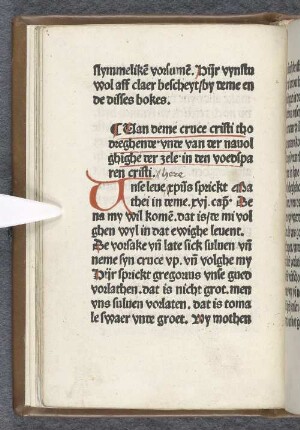 slymmelikē vorsumē. Hijr vynstu
wol aff claer bescheyt / by deme en
de disses bokes.
¶ Uan deme cruce cristi tho
dreghende vnde van der nauol
ghighe der zele in den voedspa
ren cristi.
Unse leue xpūs sprickt Ma
thei in deme .xvj. cap̄. De
na my wil komē. dat is / de mi vol
ghen wyl in dat ewighe leuent.
De vorsake vn̄ late sick suluen vn̄
neme syn cruce vp. vn̄ volghe my
Hijr sprickt gregorius vnse gued
vorlathen. dat is nicht grot. men
vns suluen vorlaten. dat is to ma
le swaer vnde groet. Wy mothen